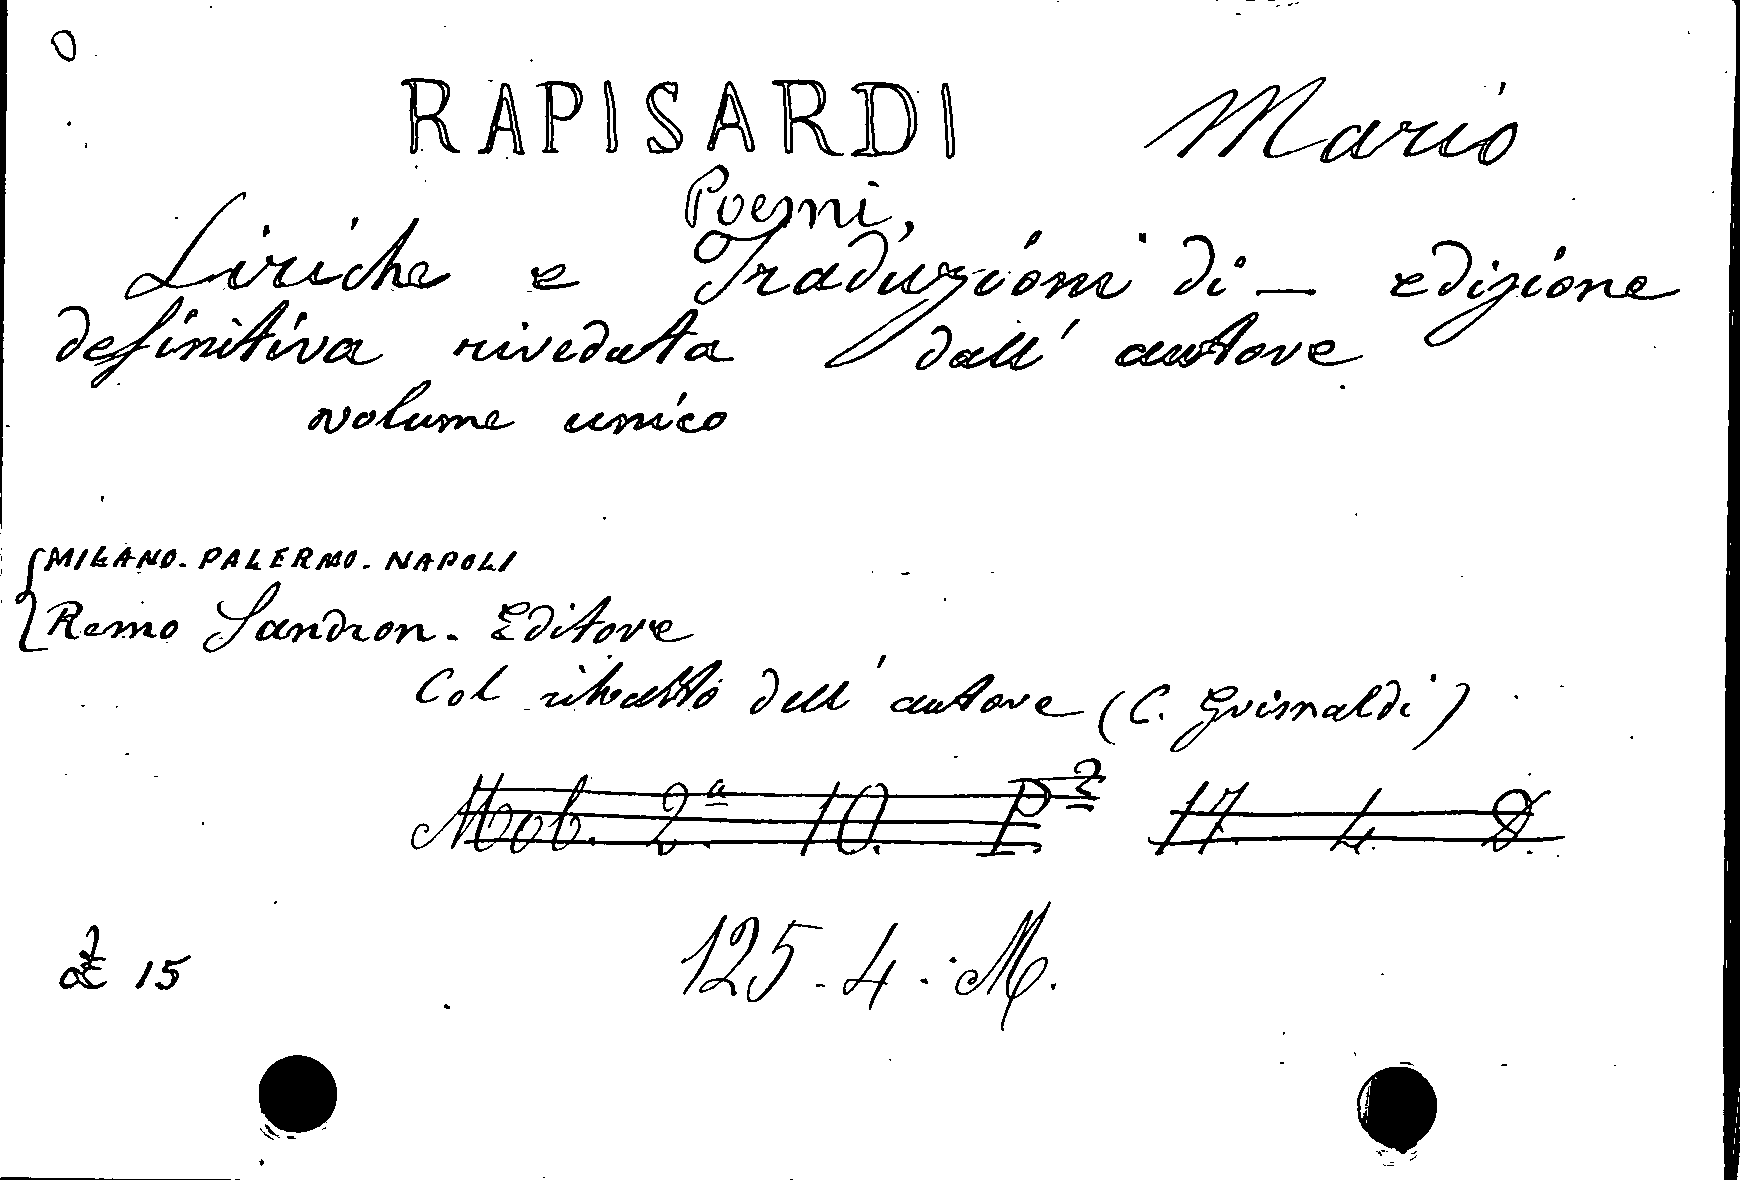 RAPISARDI Mario
Poemi,
Liriche e Traduzioni di — edizione
definitiva riveduta dall' autore
volume unico
MILANO. PALERMO. NAPOLI
Remo Sandron. Editore
Col ritratto dell' autore (C. Grimaldi)
Mob. 2ª 10. P 2 17. 4. D.
125 - 4 . M.
£ 15